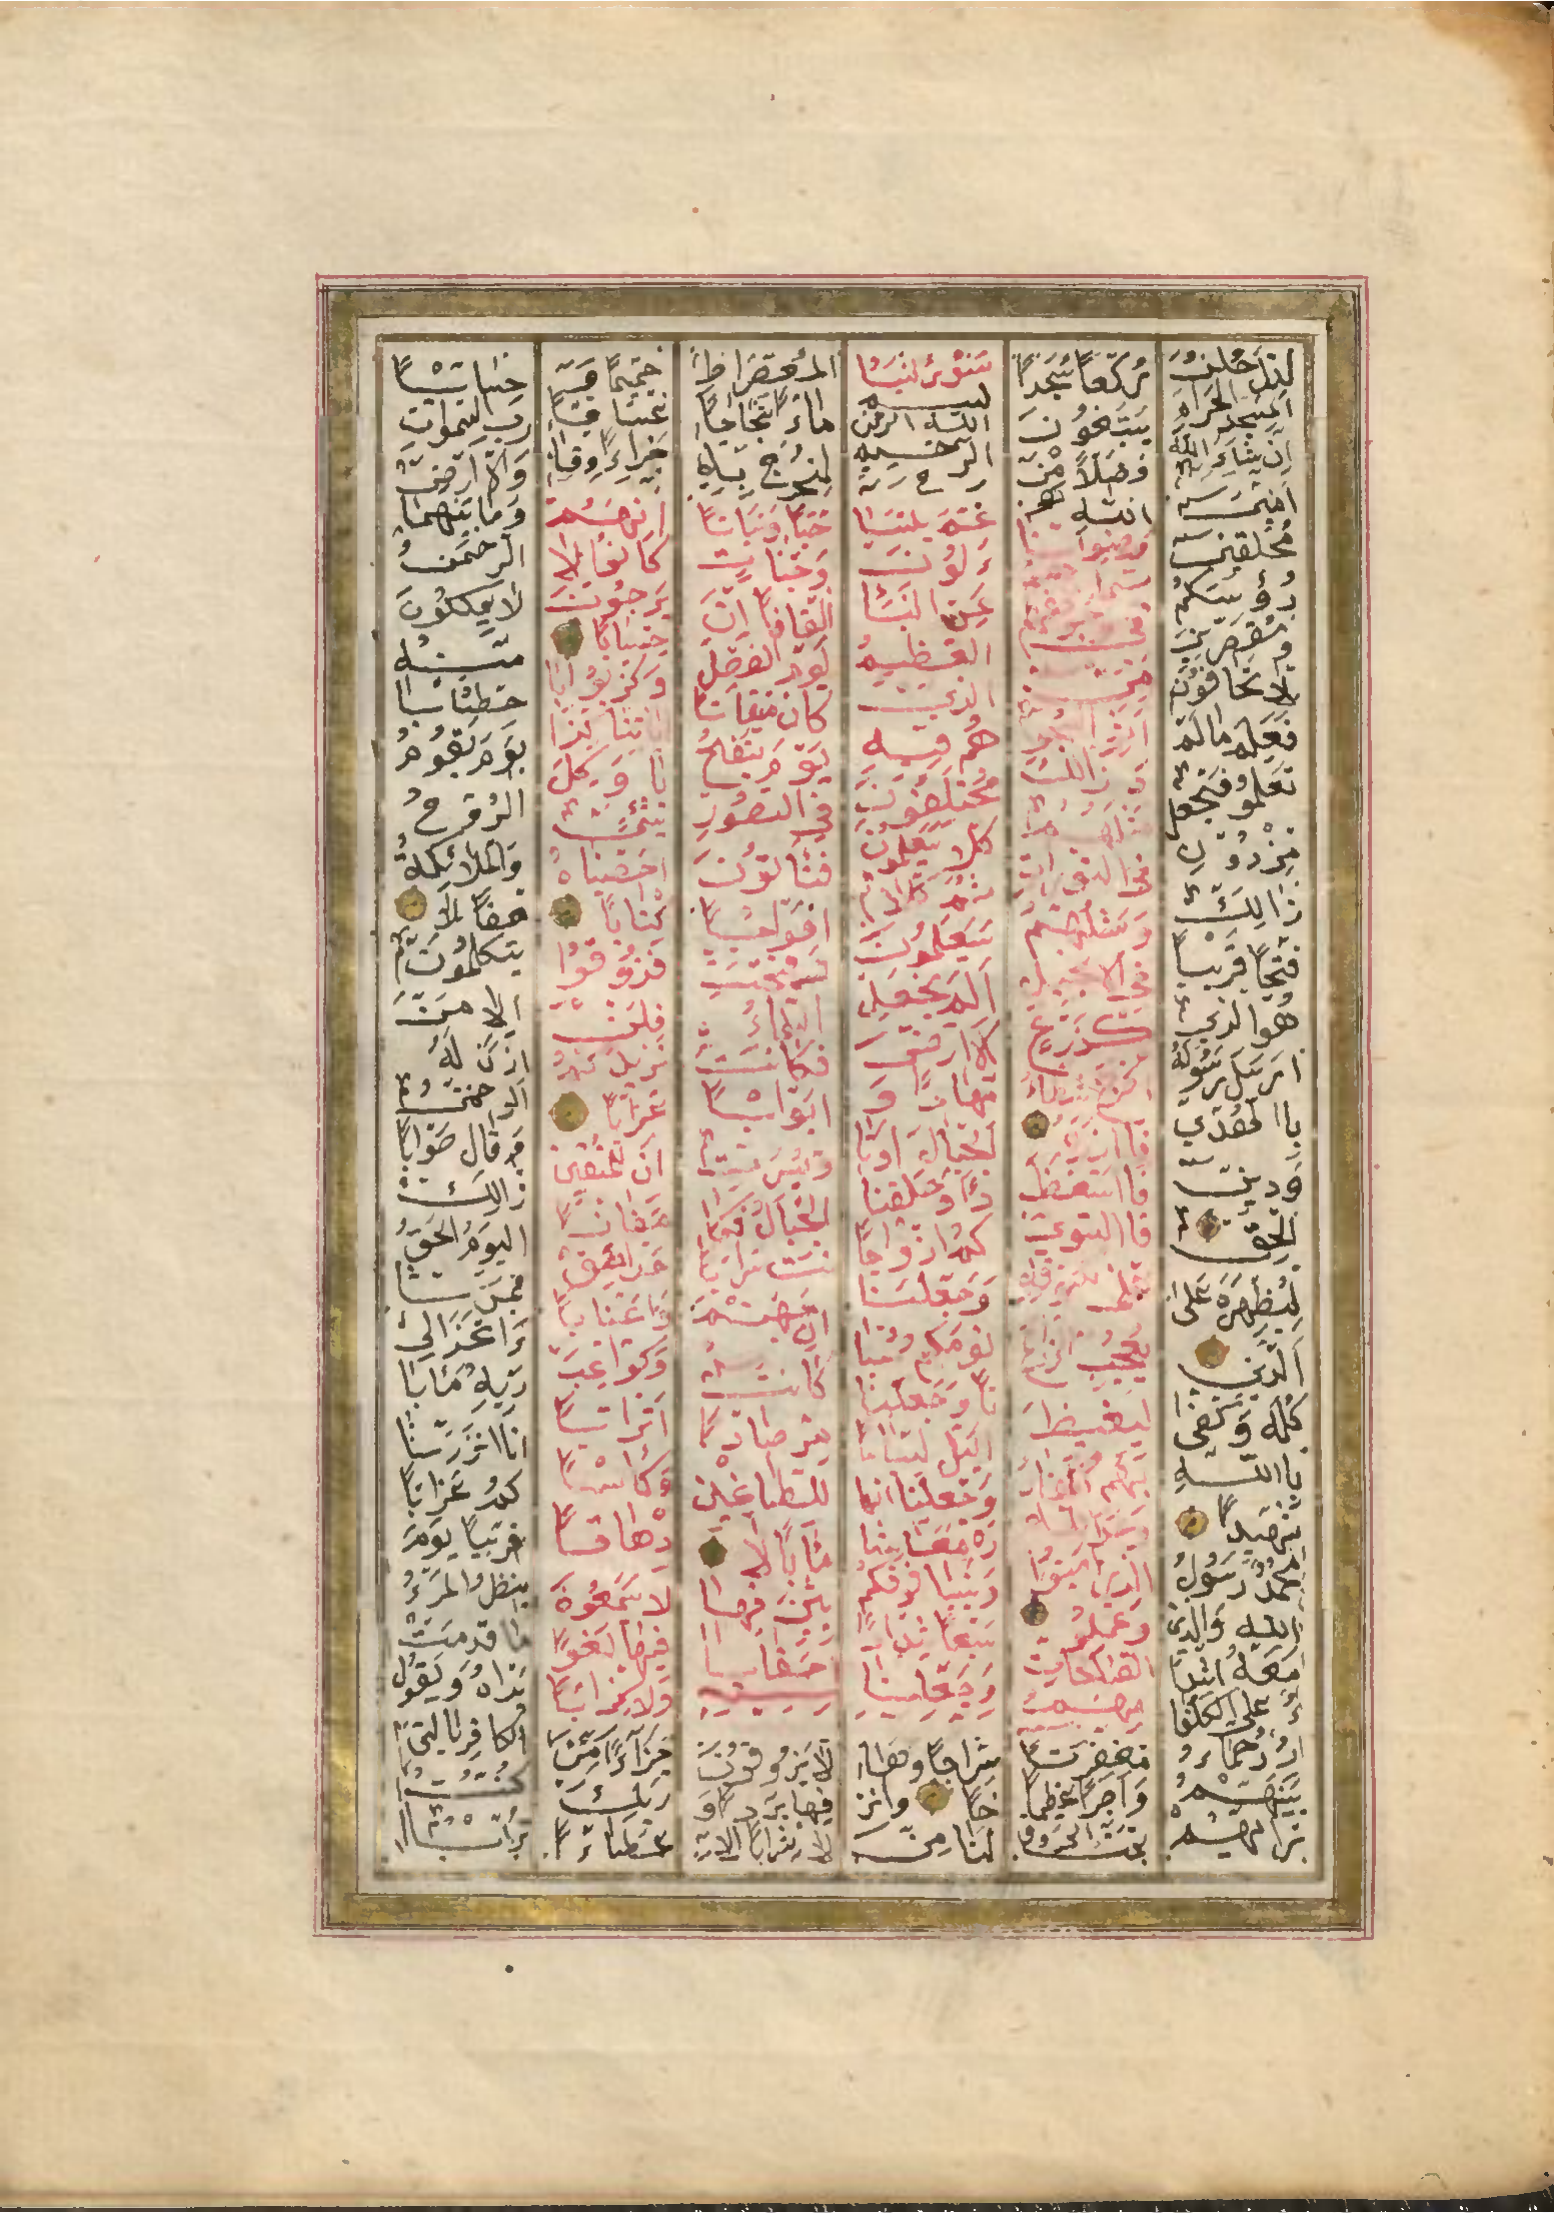 لتدخلن
المسجد الحرام
ان شاء الله
امنين
محلقين
رؤسكم
ومقصرين
لا تخافون
فعلم مالم
تعلمو فجعل
من دون
ذالك
فتحا قريبا
هو الذي
ارسل رسوله
باالهدي
ودين
الحق
ليظهره على
الدين
كله وكفى
باالله
شهيدا
محمد رسول
الله والذين
معه اشدا
ء على الكفا
ر رحماء
بينهم
تراهم
ركعا سجدا
يبتغون
فضلا من
الله
ورضوانا
سيماهم
في وجوههم
من
اثر السجود
ذالك
مثلهم
في التورات
ومثلهم
في الانجيل
كزرع
اخرج شطاء
فاازره
فااستغلظ
فااستوى
على سوقه
يعجب الزراع
ليغيظ
بهم الكفار
وعد الله
الذين امنوا
وعملو
الصالحات
منهم
مغفرت
واجرا عظيما
سورة لنبا
بسم
الله الرحمن
الرحيم
عم يتسا
ءلون
عن النبا
العظيم
الذي
هم فيه
مختلفون
كلا سيعلمون
ثم كلا
سيعلمون
الم نجعل
لارض
مهادا و
لجبال اوتا
دا وخلقنا
كم ازواجا
وجعلنا
نومكم سبا
تا وجعلنا
اليل لباسا
وجعلنا النها
ر معاشا
وبنينا فوقكم
سبعا شدادا
وجعلنا
سراجا وها
جا وانز
لنا من
المعصرات
ماء ثجاجا
لنخرج به
حبا ونباتا
وجنات
الفافا ان
يوم الفصل
كان ميقاتا
يوم ينفخ
في الصور
فتاتون
افواجا
وفتحت
السماء
فكانت
ابوابا
وسيرت
الجبال فكا
نت سرابا
ان جهنم
كانت
مرصادا
للطاغين
مابا لا
بثين فيها
احقابا
لا يذوقون
فيها بردا و
لا شرابا الا
حميما و
غساقا
جزاء وفاقا
انهم
كانوا لا
يرجون
حسابا
وكذبوا با
ياتنا كذا
با وكل
شيئ
احصيناه
كتابا
فذوقوا
فلن
نزيدكم
عذابا
ان للمتقين
مفازا
حدائق
واعنابا
وكواعب
اترابا
وكاسا
دهاقا
لا يسمعون
فيها لغوا
ولا كذابا
جزاء من
ربك
عطاء
حسابا
رب السموات
والارض
وما بينهما
الرحمن
لا يملكون
منه
خطابا
يوم يقوم
الروح
والملائكة
صفا لا
يتكلمون
الا من
اذن له
الرحمن
وقال صوابا
ذالك
اليوم الحق
فمن شا
ء اتخذ الى
ربه مابا
انا انذرنا
كم عذابا
قريبا يوم
ينظر المرء
ما قدمت
يداه ويقول
الكافر يا ليتنى
كنت
ترابا